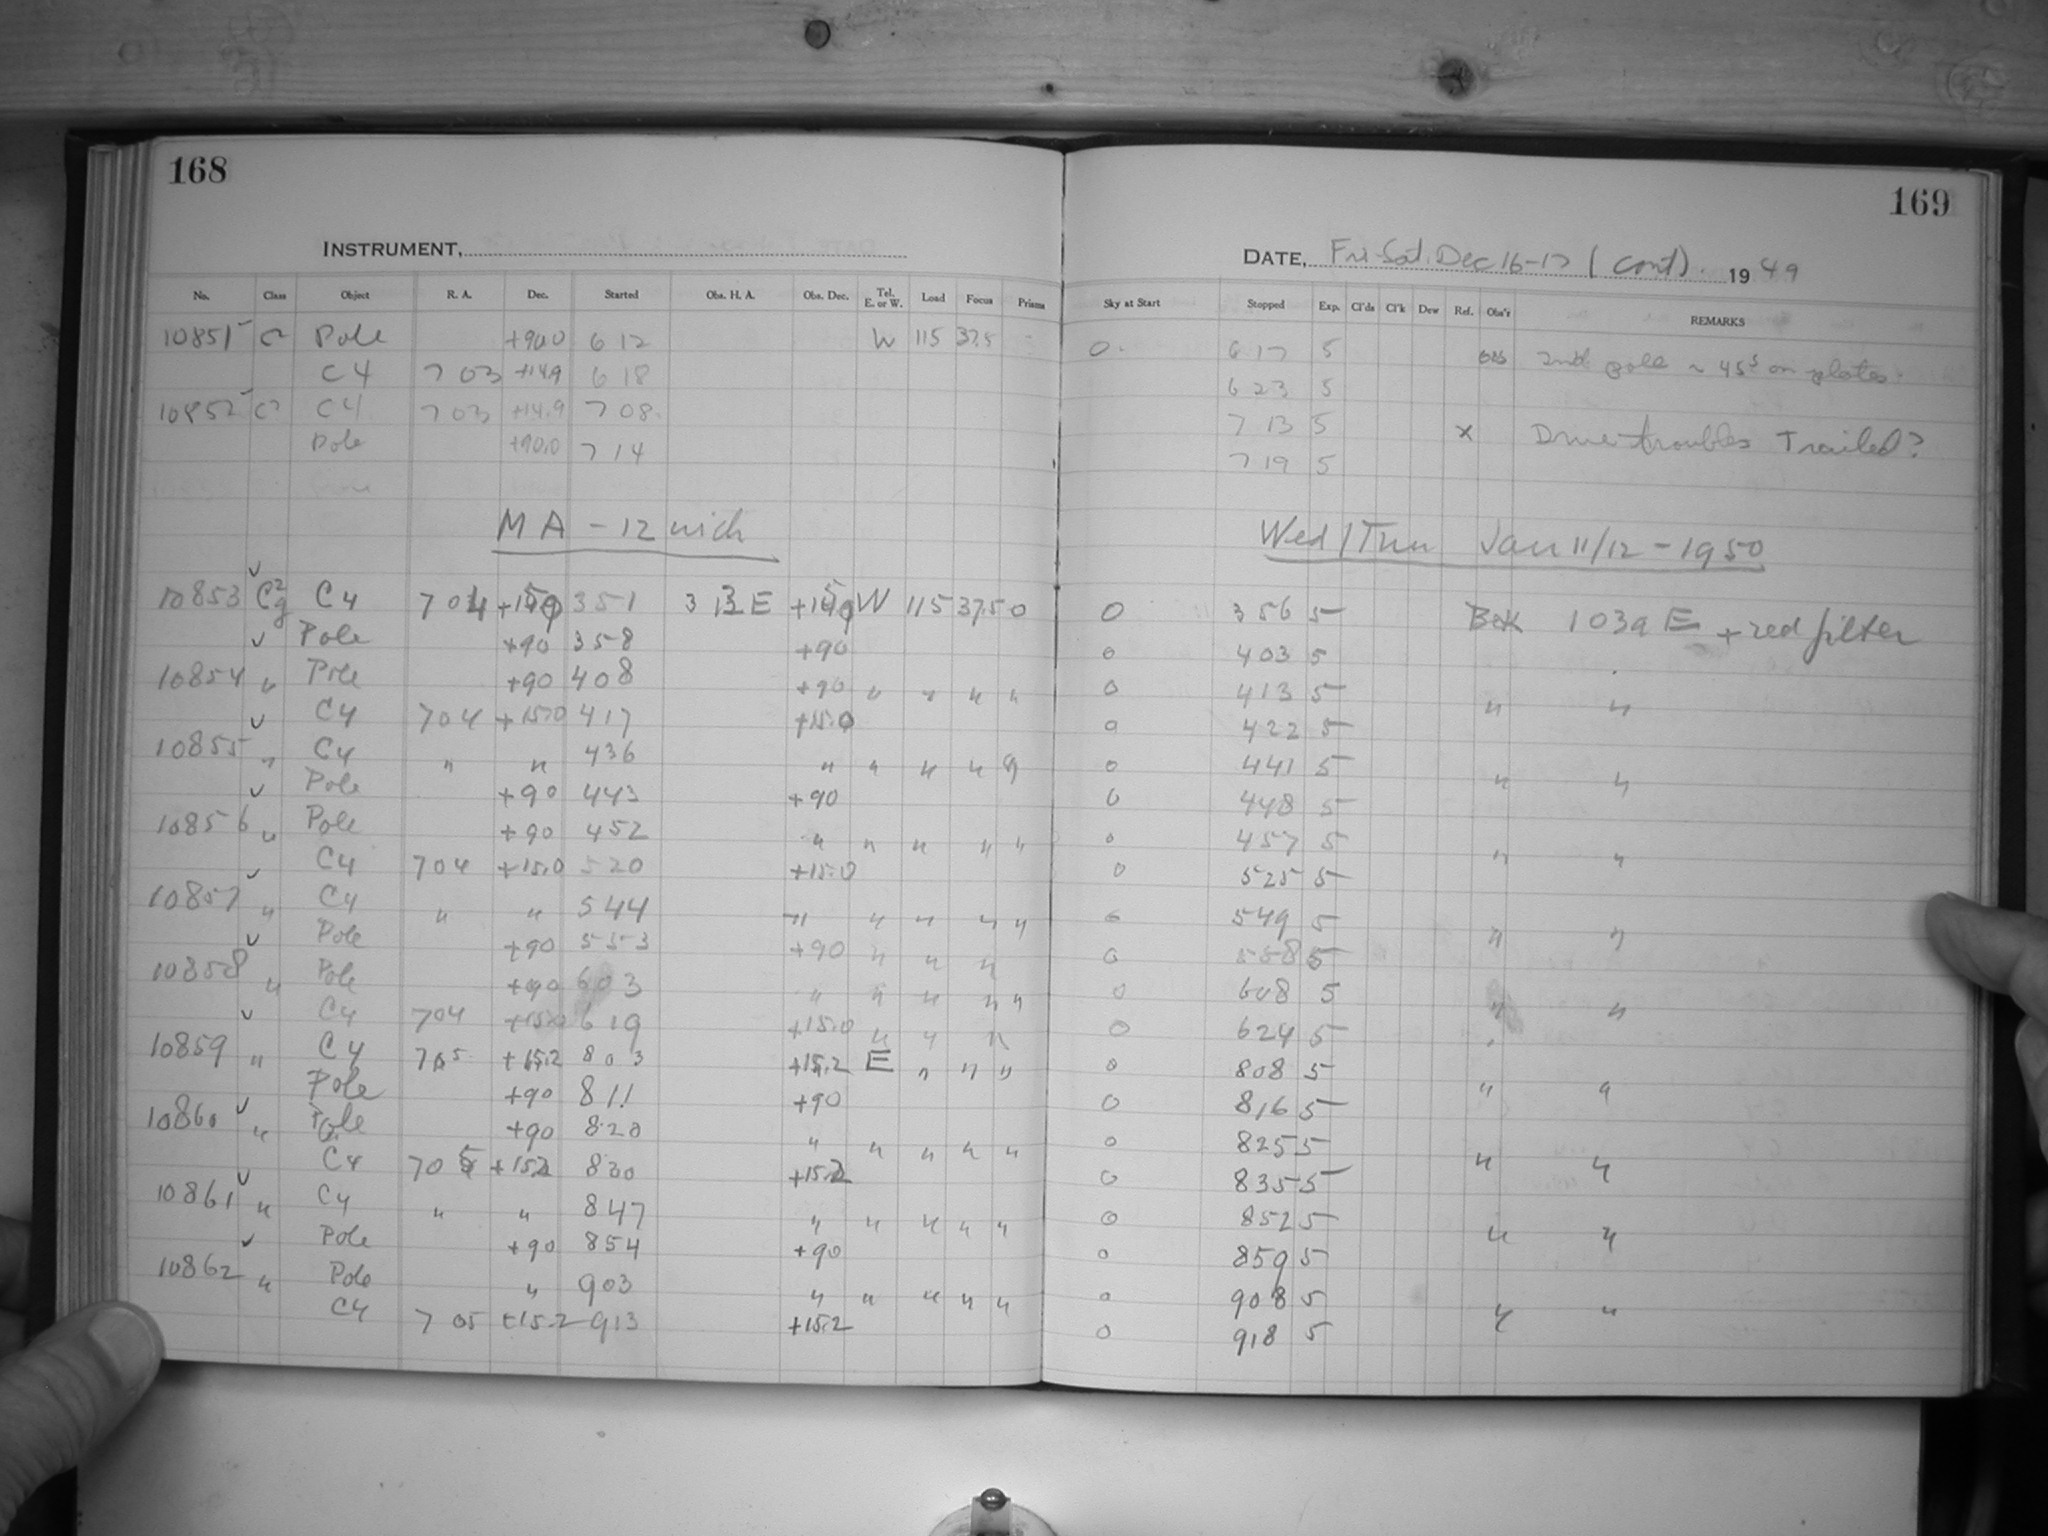 168
INSTRUMENT,
No. Class Object R. A. Dec. Started Obs. H. A. Obs. Dec. Tel. E. or W. Load Focus Prisms
10851 C Pole +90.0 6 12 W 115 37.5
C4 7 03 +14.9 6 18
10852 C C4 7 03 +14.9 7 08
Pole +90.0 7 14
MA - 12 inch
10853 C4 7 04 3 51 W 115 37.5 0
Pole +90 3 58 +90
10854 " Pole +90 4 08 +90 " " " "
C4 7 04 +15.0 4 17 +15.0
10855 " C4 " " 4 36 " " " "
Pole +90 4 43 +90
10856 " Pole +90 4 52 " " " " "
C4 7 04 +15.0 5 20 +15.0
10857 " C4 " " 5 44 " " " " "
Pole +90 5 53 +90 " " "
10858 " Pole +90 6 03 " " " " "
C4 7 04 +15.0 6 19 +15.0 " " "
10859 " C4 7 05 +15.2 8 03 +15.2 E " " "
Pole +90 8 11 +90
10860 " Pole +90 8 20 " " " " "
C4 7 05 +15.2 8 30 +15.2
10861 " C4 " " 8 47 " " " " "
Pole +90 8 54 +90
10862 " Pole " 9 03 " " " " "
C4 7 05 +15.2 9 13 +15.2
169
DATE, Fri-Sat. Dec 16-17 (cont). 19 49
Sky at Start Stopped Exp. Cl'ds Cl'k Dew Ref. Obs'r REMARKS
0 6 17 5 2nd pole ~ 45s on plates.
6 23 5
7 13 5 x Drive troubles Trailed?
7 19 5
Wed/Thu Jan 11/12 - 1950
0 3 56 5 Bok 103a E + red filter
0 4 03 5
0 4 13 5 " "
0 4 22 5
0 4 41 5 " "
0 4 48 5
0 4 57 5 " "
0 5 25 5
0 5 49 5 " "
0 5 58 5
0 6 08 5 " "
0 6 24 5
0 8 08 5 " "
0 8 16 5
0 8 25 5 " "
0 8 35 5
0 8 52 5 " "
0 8 59 5
0 9 08 5 " "
0 9 18 5